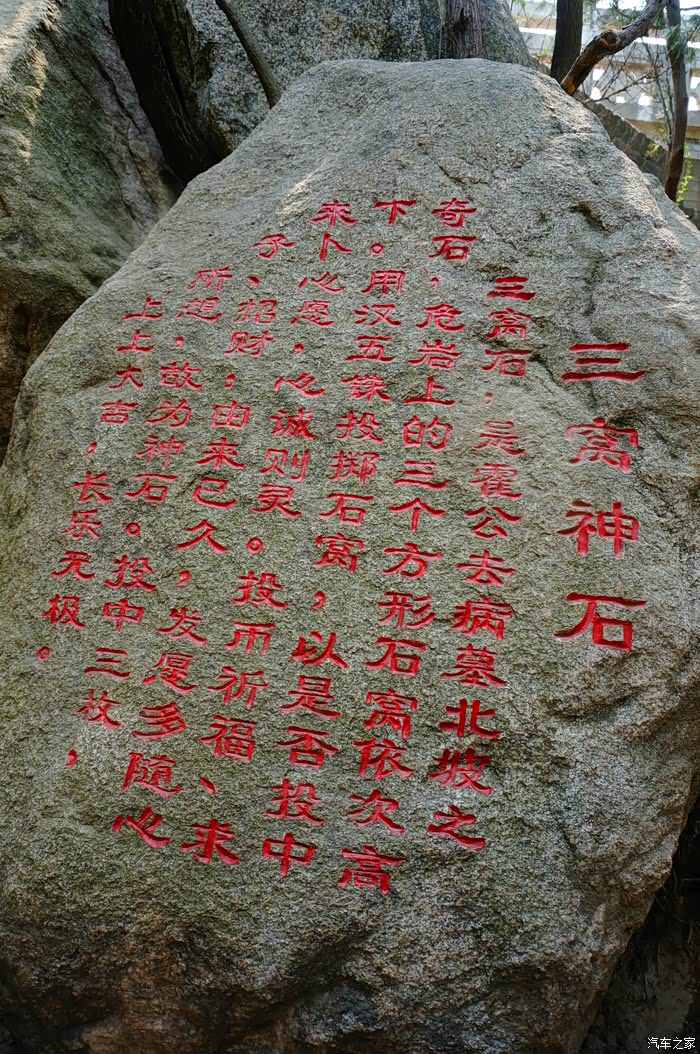 三窝神石
三窝石，是霍公去病墓北坡之
奇石，危岩上的三个方形石窝依次高
下。用汉五铢投掷石窝，以是否投中
来卜心愿，心诚则灵。投币祈福、求
子、招财，由来已久，发愿多随心
所想，故为神石。投中三枚，
上上大吉，长乐无极。
汽车之家